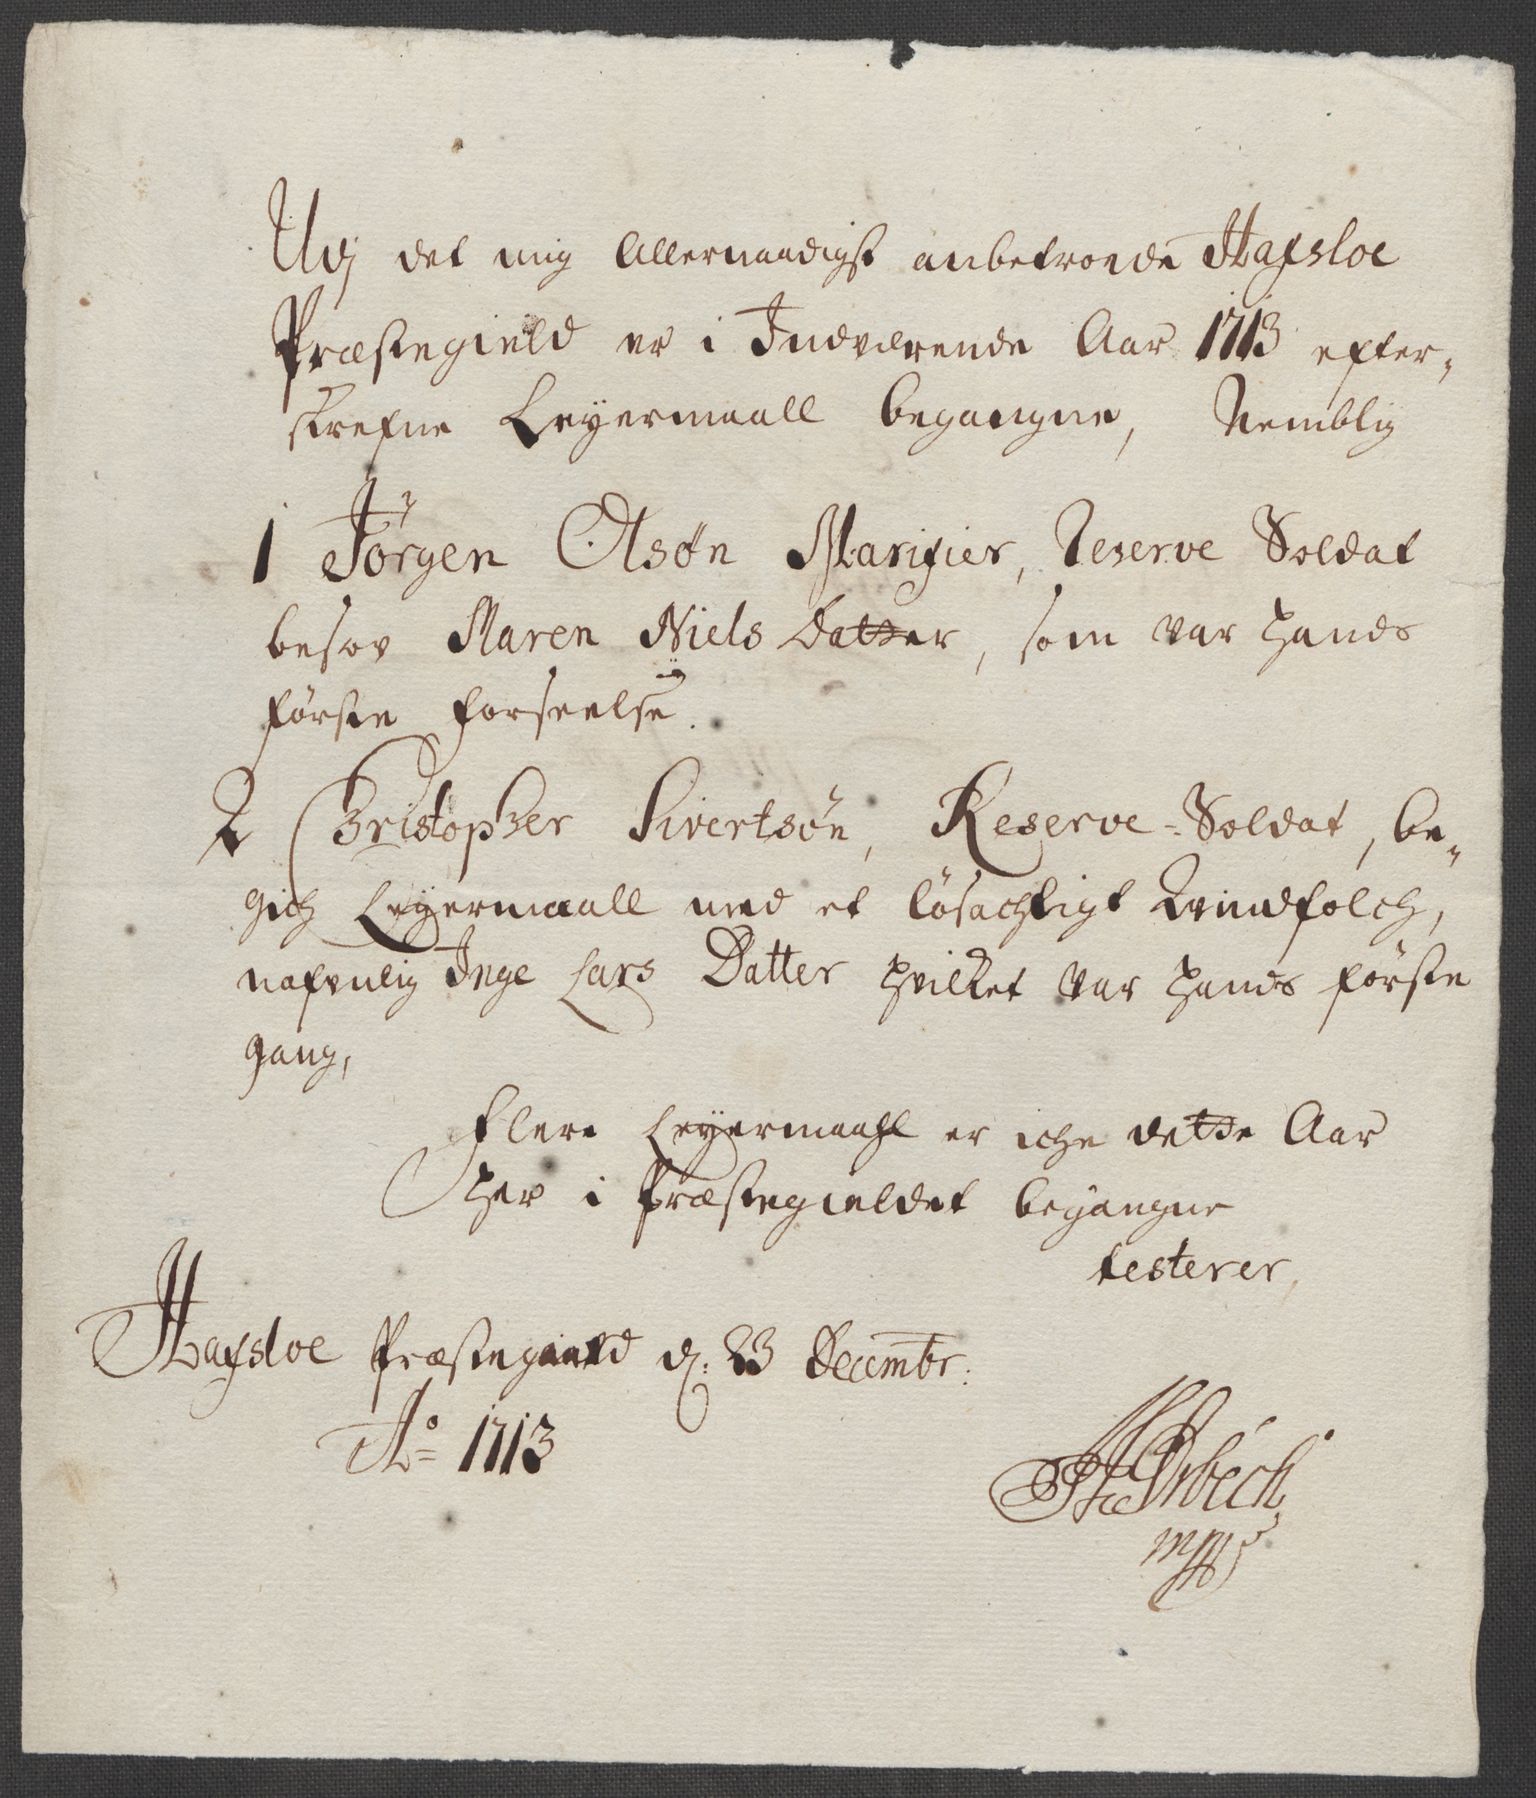 Udj det mig Allernaadigst anbetroede Hafsloe
Præstegield er i Indværende Aar 1713 efter-
skrefne Leyermaall begangne, Nemblig
1 Jörgen Olsøn Marifier, Reserve Soldat
besov Maren Niels Datter, som var hands
første forseelse.
2 Christopher Sivertsøn, Reserve-Soldat, be-
gich Leyermaall med et løsachtigt Qvindfolch,
nafnlig Inge Lars Datter hvilket var hands første
gang,
Flere Leyermaahl er iche dette Aar
her i Præstegieldet begangne
testerer,
Hafsloe Præstegaard d: 23 Decembr:
Ao 1713
Orbech
mpp